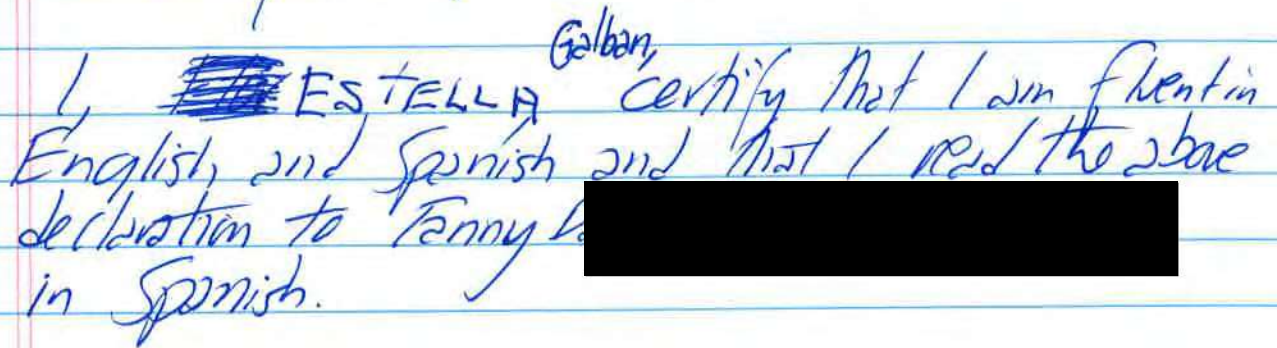 Galban,
I, ESTELLA certify that I am fluent in
English, and Spanish and that I read the above
declaration to Fanny
in Spanish.